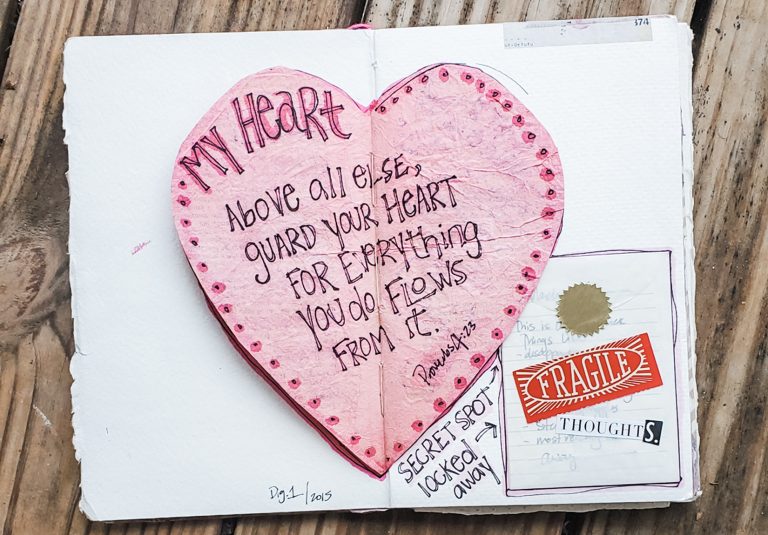 374
MY HEARt
Above all ELSE,
guard your HEART
FOR EVERYthing
YOU do FLOWS
FROM it.
Proverbs 4:23
This is
things
FRAGILE
THOUGHTS.
away
SECRET SPOT
locked
away
2015